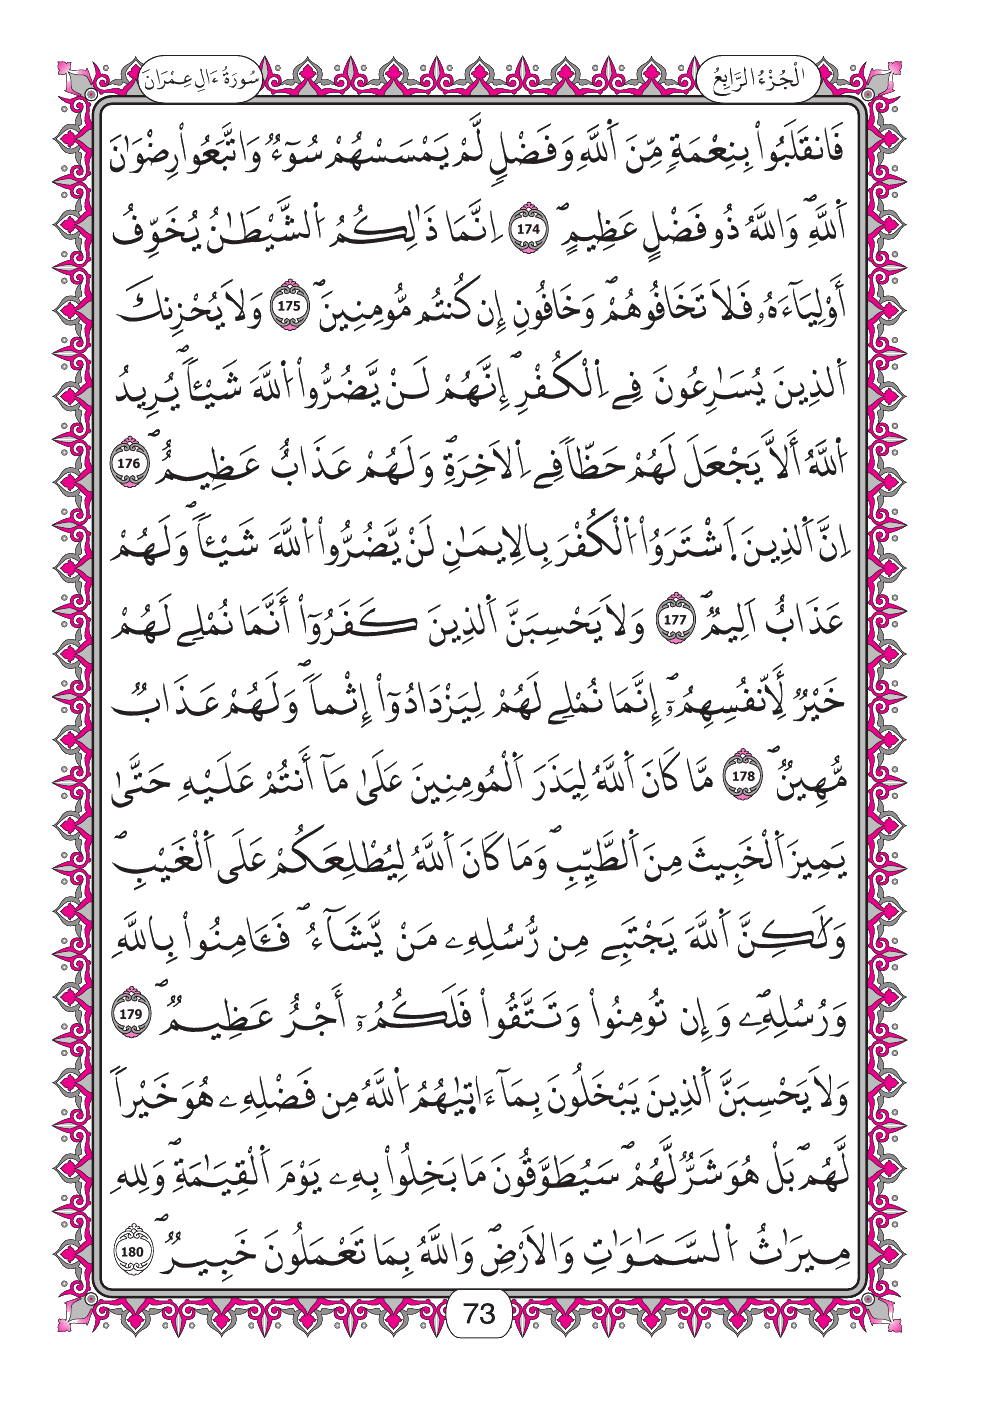 الْجُزْءُ الرَّابِعُ
سُورَةُ ءَالِ عِمْرَانَ
فَانقَلَبُواْ بِنِعْمَةٖ مِّنَ اَ۬للَّهِ وَفَضْلٖ لَّمْ يَمْسَسْهُمْ سُوٓءٞ وَاتَّبَعُواْ رِضْوَٰنَ
اَ۬للَّهِۖ وَاللَّهُ ذُو فَضْلٍ عَظِيمٍۖ 174 اِنَّمَا ذَٰلِكُمُ اُ۬لشَّيْطَٰنُ يُخَوِّفُ
أَوْلِيَآءَهُۥ فَلاَ تَخَافُوهُمْۖ وَخَافُونِ إِن كُنتُم مُّومِنِينَۖ 175 وَلاَ يُحْزِنكَ
اَ۬لذِينَ يُسَٰرِعُونَ فِے اِ۬لْكُفْرِۖ إِنَّهُمْ لَنْ يَّضُرُّواْ اُ۬للَّهَ شَيْـٔاٗۖ يُرِيدُ
اُ۬للَّهُ أَلاَّ يَجْعَلَ لَهُمْ حَظّاٗ فِے اِ۬لاَخِرَةِۖ وَلَهُمْ عَذَابٌ عَظِيمٌۖ 176
اِنَّ اَ۬لذِينَ اَ۪شْتَرَوُاْ اُ۬لْكُفْرَ بِالِايمَٰنِ لَنْ يَّضُرُّواْ اُ۬للَّهَ شَيْـٔاٗۖ وَلَهُمْ
عَذَابٌ اَلِيمٞۖ 177 وَلاَ يَحْسِبَنَّ اَ۬لذِينَ كَفَرُوٓاْ أَنَّمَا نُمْلِے لَهُمْ
خَيْرٞ لِّأَنفُسِهِمُۥٓۖ إِنَّمَا نُمْلِے لَهُمْ لِيَزْدَادُوٓاْ إِثْماٗۖ وَلَهُمْ عَذَابٞ
مُّهِينٞۖ 178 مَّا كَانَ اَ۬للَّهُ لِيَذَرَ اَ۬لْمُومِنِينَ عَلَىٰ مَآ أَنتُمْ عَلَيْهِ حَتَّىٰ
يَمِيزَ اَ۬لْخَبِيثَ مِنَ اَ۬لطَّيِّبِۖ وَمَا كَانَ اَ۬للَّهُ لِيُطْلِعَكُمْ عَلَى اَ۬لْغَيْبِۖ
وَلَٰكِنَّ اَ۬للَّهَ يَجْتَبِے مِن رُّسُلِهِۦ مَنْ يَّشَآءُۖ فَـَٔامِنُواْ بِاللَّهِ
وَرُسُلِهِۦۖ وَإِن تُومِنُواْ وَتَتَّقُواْ فَلَكُمُۥٓ أَجْرٌ عَظِيمٞۖ 179
وَلاَ يَحْسِبَنَّ اَ۬لذِينَ يَبْخَلُونَ بِمَآ ءَات۪يٰهُمُ اُ۬للَّهُ مِن فَضْلِهِۦ هُوَ خَيْراٗ
لَّهُمۖ بَلْ هُوَ شَرّٞ لَّهُمْۖ سَيُطَوَّقُونَ مَا بَخِلُواْ بِهِۦ يَوْمَ اَ۬لْقِيَٰمَةِۖ وَلِلهِ
مِيرَٰثُ اُ۬لسَّمَٰوَٰتِ وَالَارْضِۖ وَاللَّهُ بِمَا تَعْمَلُونَ خَبِيرٞۖ 180
73